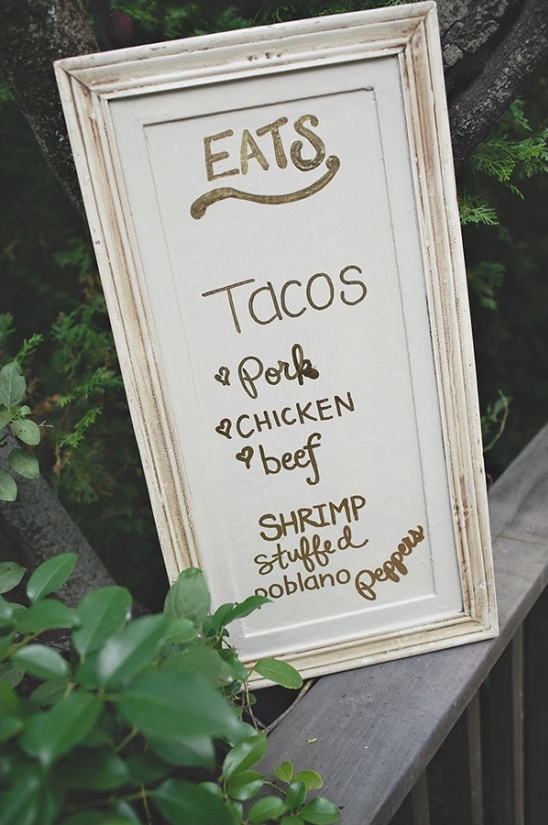 EATS
Tacos
Pork
CHICKEN
beef
SHRIMP
stuffed
poblano peppers